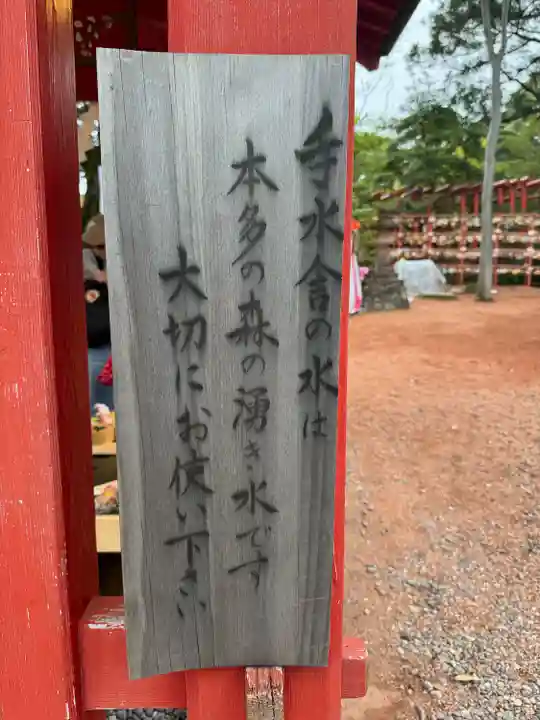 手水舎の水は
本多の森の湧き水です
大切にお使い下さい